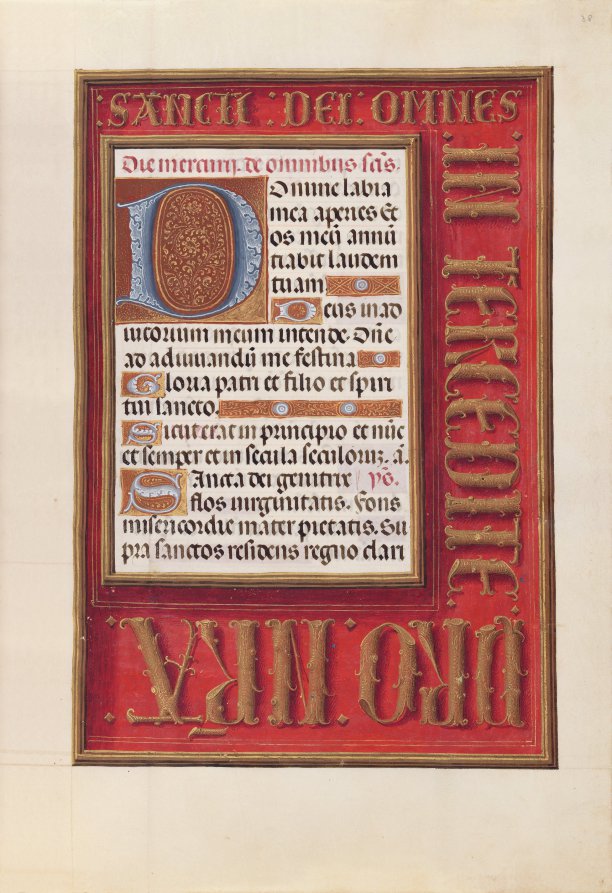 28
SANCTI : DEI : OMNES
IN TERCEDITE
PRO . NR̄A
Die mercurij. de omnibus scīs.
Domine labia
mea aperies Et
os meū annū
tiabit laudem
tuam
Deus in ad
iutorium meum intende. Dn̄e
ad adiuuandū me festina
Gloria patri et filio et spiri
tui sancto.
Sicut erat in principio et nūc
et semper et in secula seculorū. a.
Sancta dei genitrix
flos virginitatis. Fons
misericordie mater pietatis. Su
pra sanctos residens regno clari